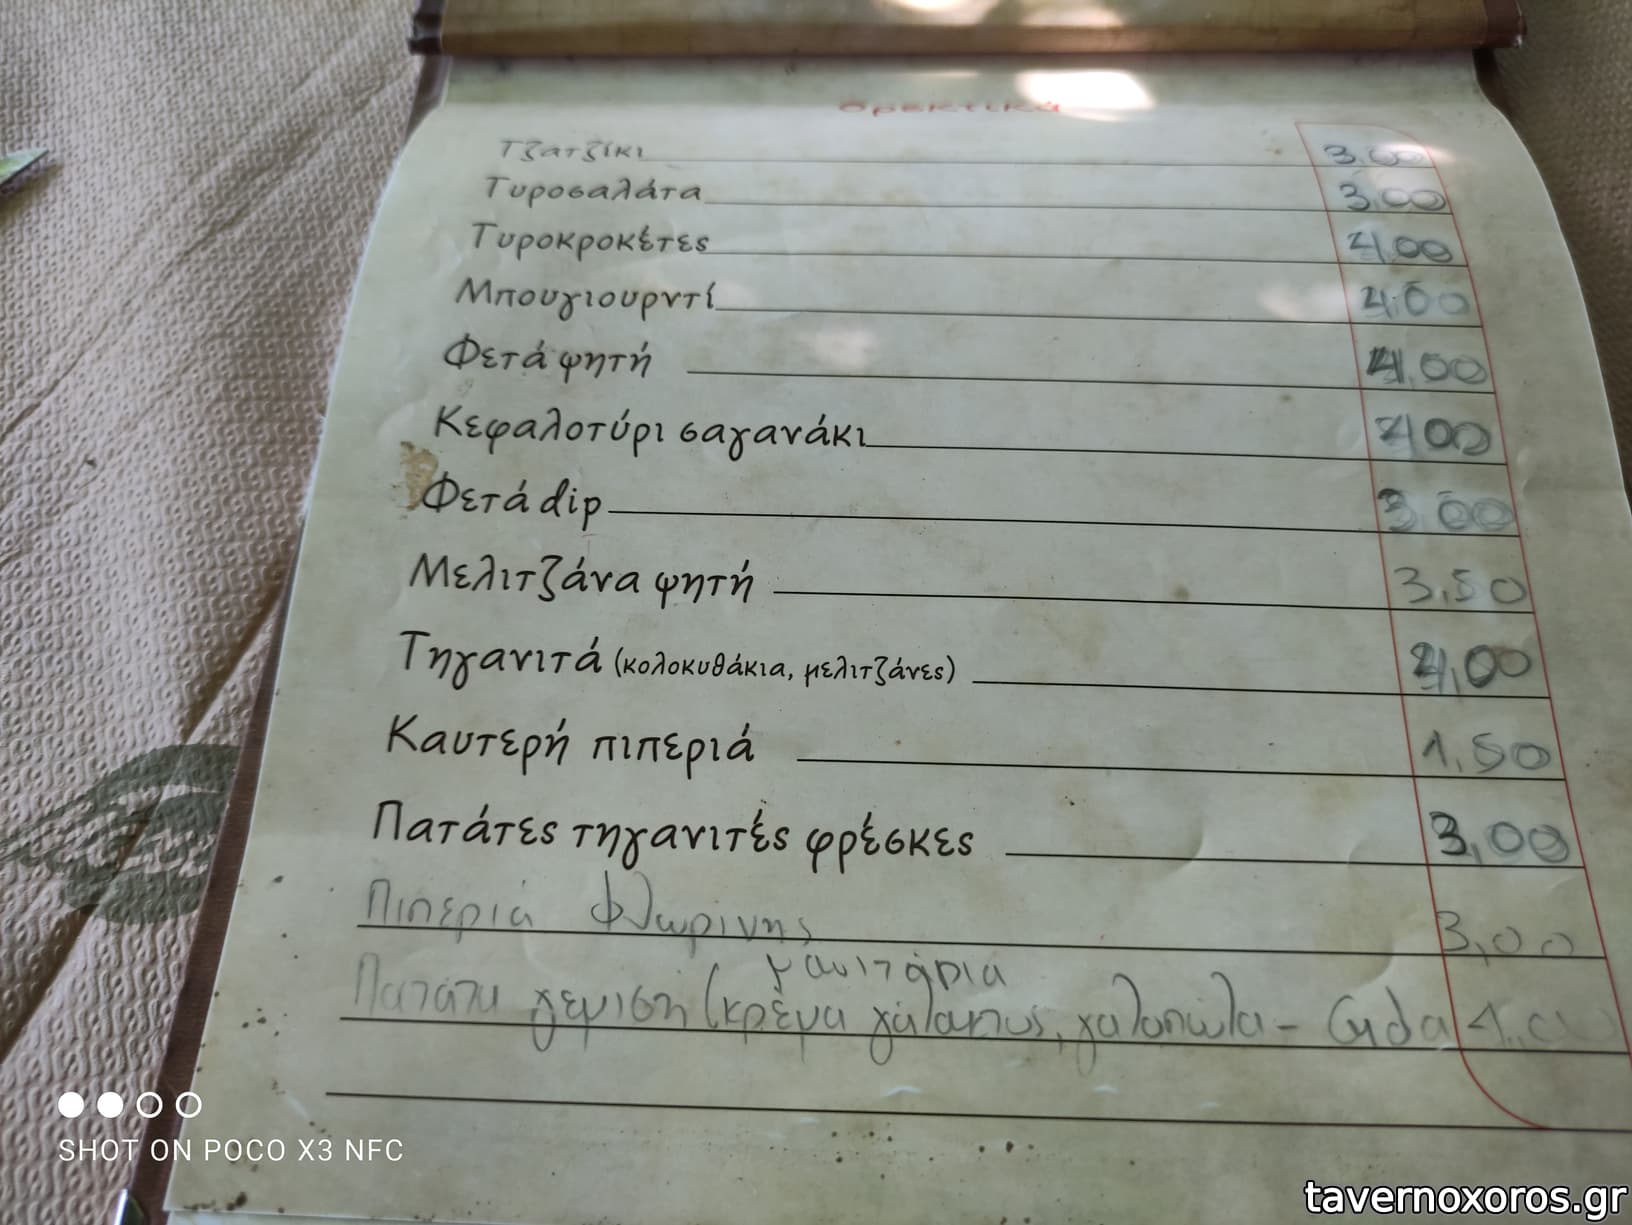 Ορεκτικά
Τζατζίκι 3,00
Τυροσαλάτα 3,00
Τυροκροκέτες 4,00
Μπουγιουρντί 4,00
Φετά ψητή 4,00
Κεφαλοτύρι σαγανάκι 4,00
Φετά dip 3,00
Μελιτζάνα ψητή 3,50
Τηγανιτά (κολοκυθάκια, μελιτζάνες) 4,00
Καυτερή πιπεριά 1,50
Πατάτες τηγανιτές φρέσκες 3,00
Πιπεριά Φλωρίνης 3,00
μανιτάρια
Πατάτα γεμιστή (κρέμα γάλακτος, γαλοπούλα -
SHOT ON POCO X3 NFC
tavernoxoros.gr